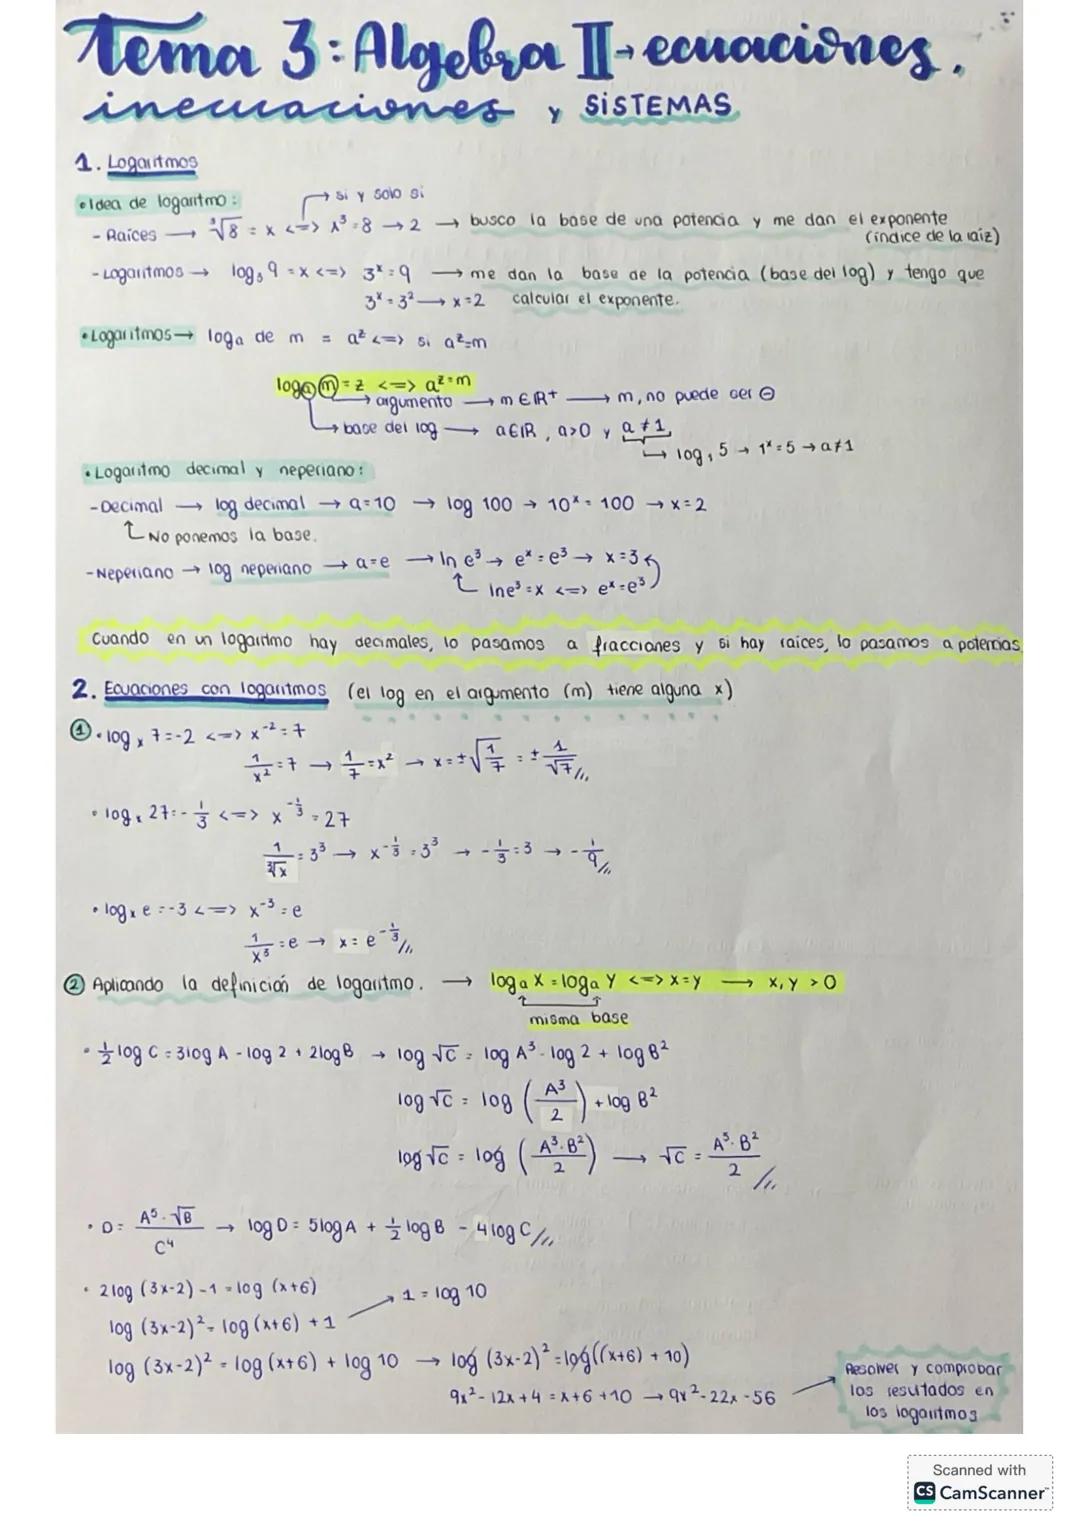 Tema 3: Algebra II → ecuaciones,
inecuaciones y SISTEMAS
1. Logaritmos
• Idea de logaritmo:
→ si y solo si
- Raíces → ∛8 = x <=> x³=8 → 2 → busco la base de una potencia y me dan el exponente
(índice de la raíz)
- Logaritmos → log₃ 9 = x <=> 3ˣ = 9 → me dan la base de la potencia (base del log) y tengo que
3ˣ = 3² → x=2 calcular el exponente.
• Logaritmos → logₐ de m = aᶻ <=> si aᶻ=m
logₐ m = z <=> aᶻ=m
→ argumento → m ∈ ℝ+ → m, no puede ser ⊖
→ base del log → a∈ℝ, a>0 y a ≠ 1
→ log₁ 5 → 1ˣ = 5 → a≠1
• Logaritmo decimal y neperiano:
- Decimal → log decimal → a=10 → log 100 → 10ˣ = 100 → x=2
↑ No ponemos la base.
- Neperiano → log neperiano → a=e → ln e³ → eˣ = e³ → x=3
↑ lne³ = x <=> eˣ=e³
Cuando en un logaritmo hay decimales, lo pasamos a fracciones y si hay raíces, lo pasamos a potencias
2. Ecuaciones con logaritmos (el log en el argumento (m) tiene alguna x)
① • logₓ 7=-2 <=> x⁻² = 7
1/x² = 7 → 1/7 = x² → x = ±√(1/7) = ± 1/√7 //,
• logₓ 27 = - 1/3 <=> x^(-1/3) = 27
1/∛x = 3³ → x^(-1/3) = 3³ → - 1/3 = 3 → - 1/9 //,
• logₓ e = -3 <=> x⁻³ = e
1/x³ = e → x = e^(-1/3) //,
② Aplicando la definición de logaritmo. → logₐ x = logₐ y <=> x=y → x, y > 0
misma base
• 1/2 log C = 3log A - log 2 + 2log B → log √C = log A³ - log 2 + log B²
log √C = log (A³/2) + log B²
log √C = log (A³·B²/2) → √C = A³·B²/2 //,
• D = A⁵·√B/C⁴ → log D = 5log A + 1/2 log B - 4 log C //,
• 2log (3x-2) - 1 = log (x+6)
→ 1 = log 10
log (3x-2)² = log (x+6) + 1
log (3x-2)² = log (x+6) + log 10 → log (3x-2)² = log((x+6) + 10)
9x² - 12x + 4 = x+6 + 10 → 9x² - 22x - 56
Resolver y comprobar
los resultados en
los logaritmos
Scanned with
CS CamScanner™